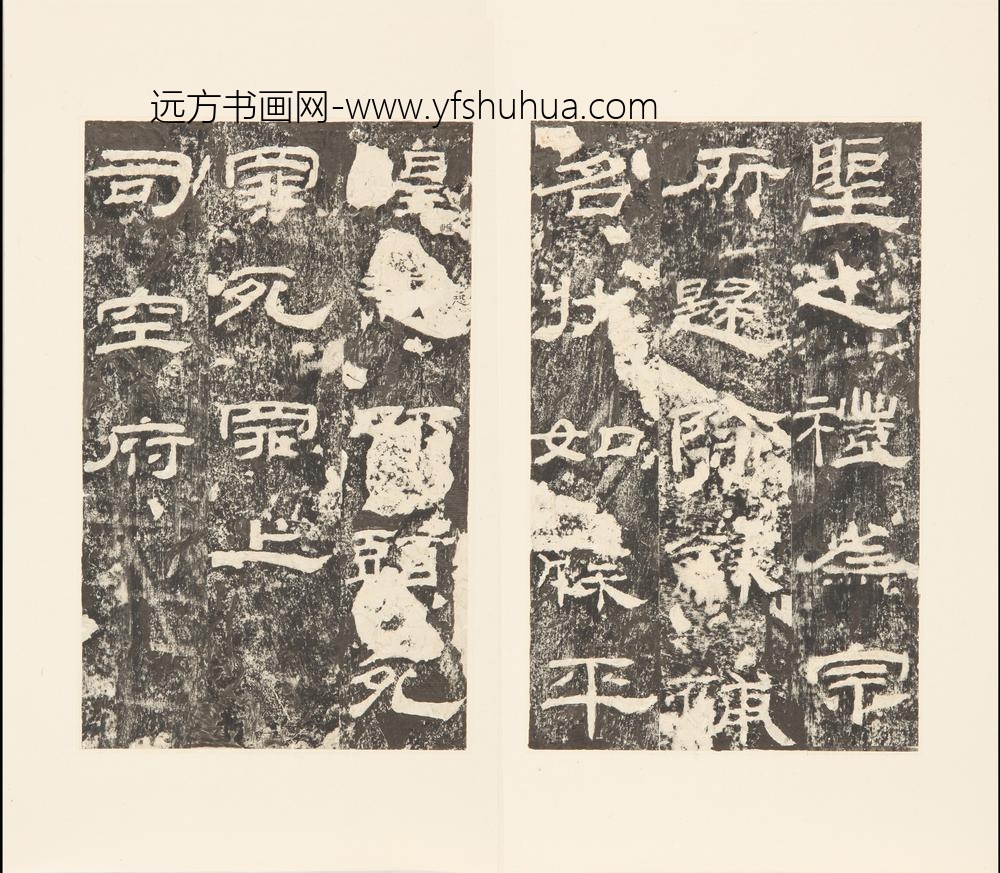 远方书画网-www.yfshuhua.com
聖之禮為宗
所歸除龢補
名狀如牒平
惶恐叩頭死
罪死罪上
司空府